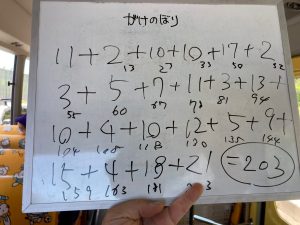 がけのぼり
11+2+10+10+17+2
13 23 33 50 52
3+5+7+11+3+13+
55 60 67 78 81 94
10+4+10+12+5+9+
104 108 118 130 135 144
15+4+18+21 =203
159 163 181